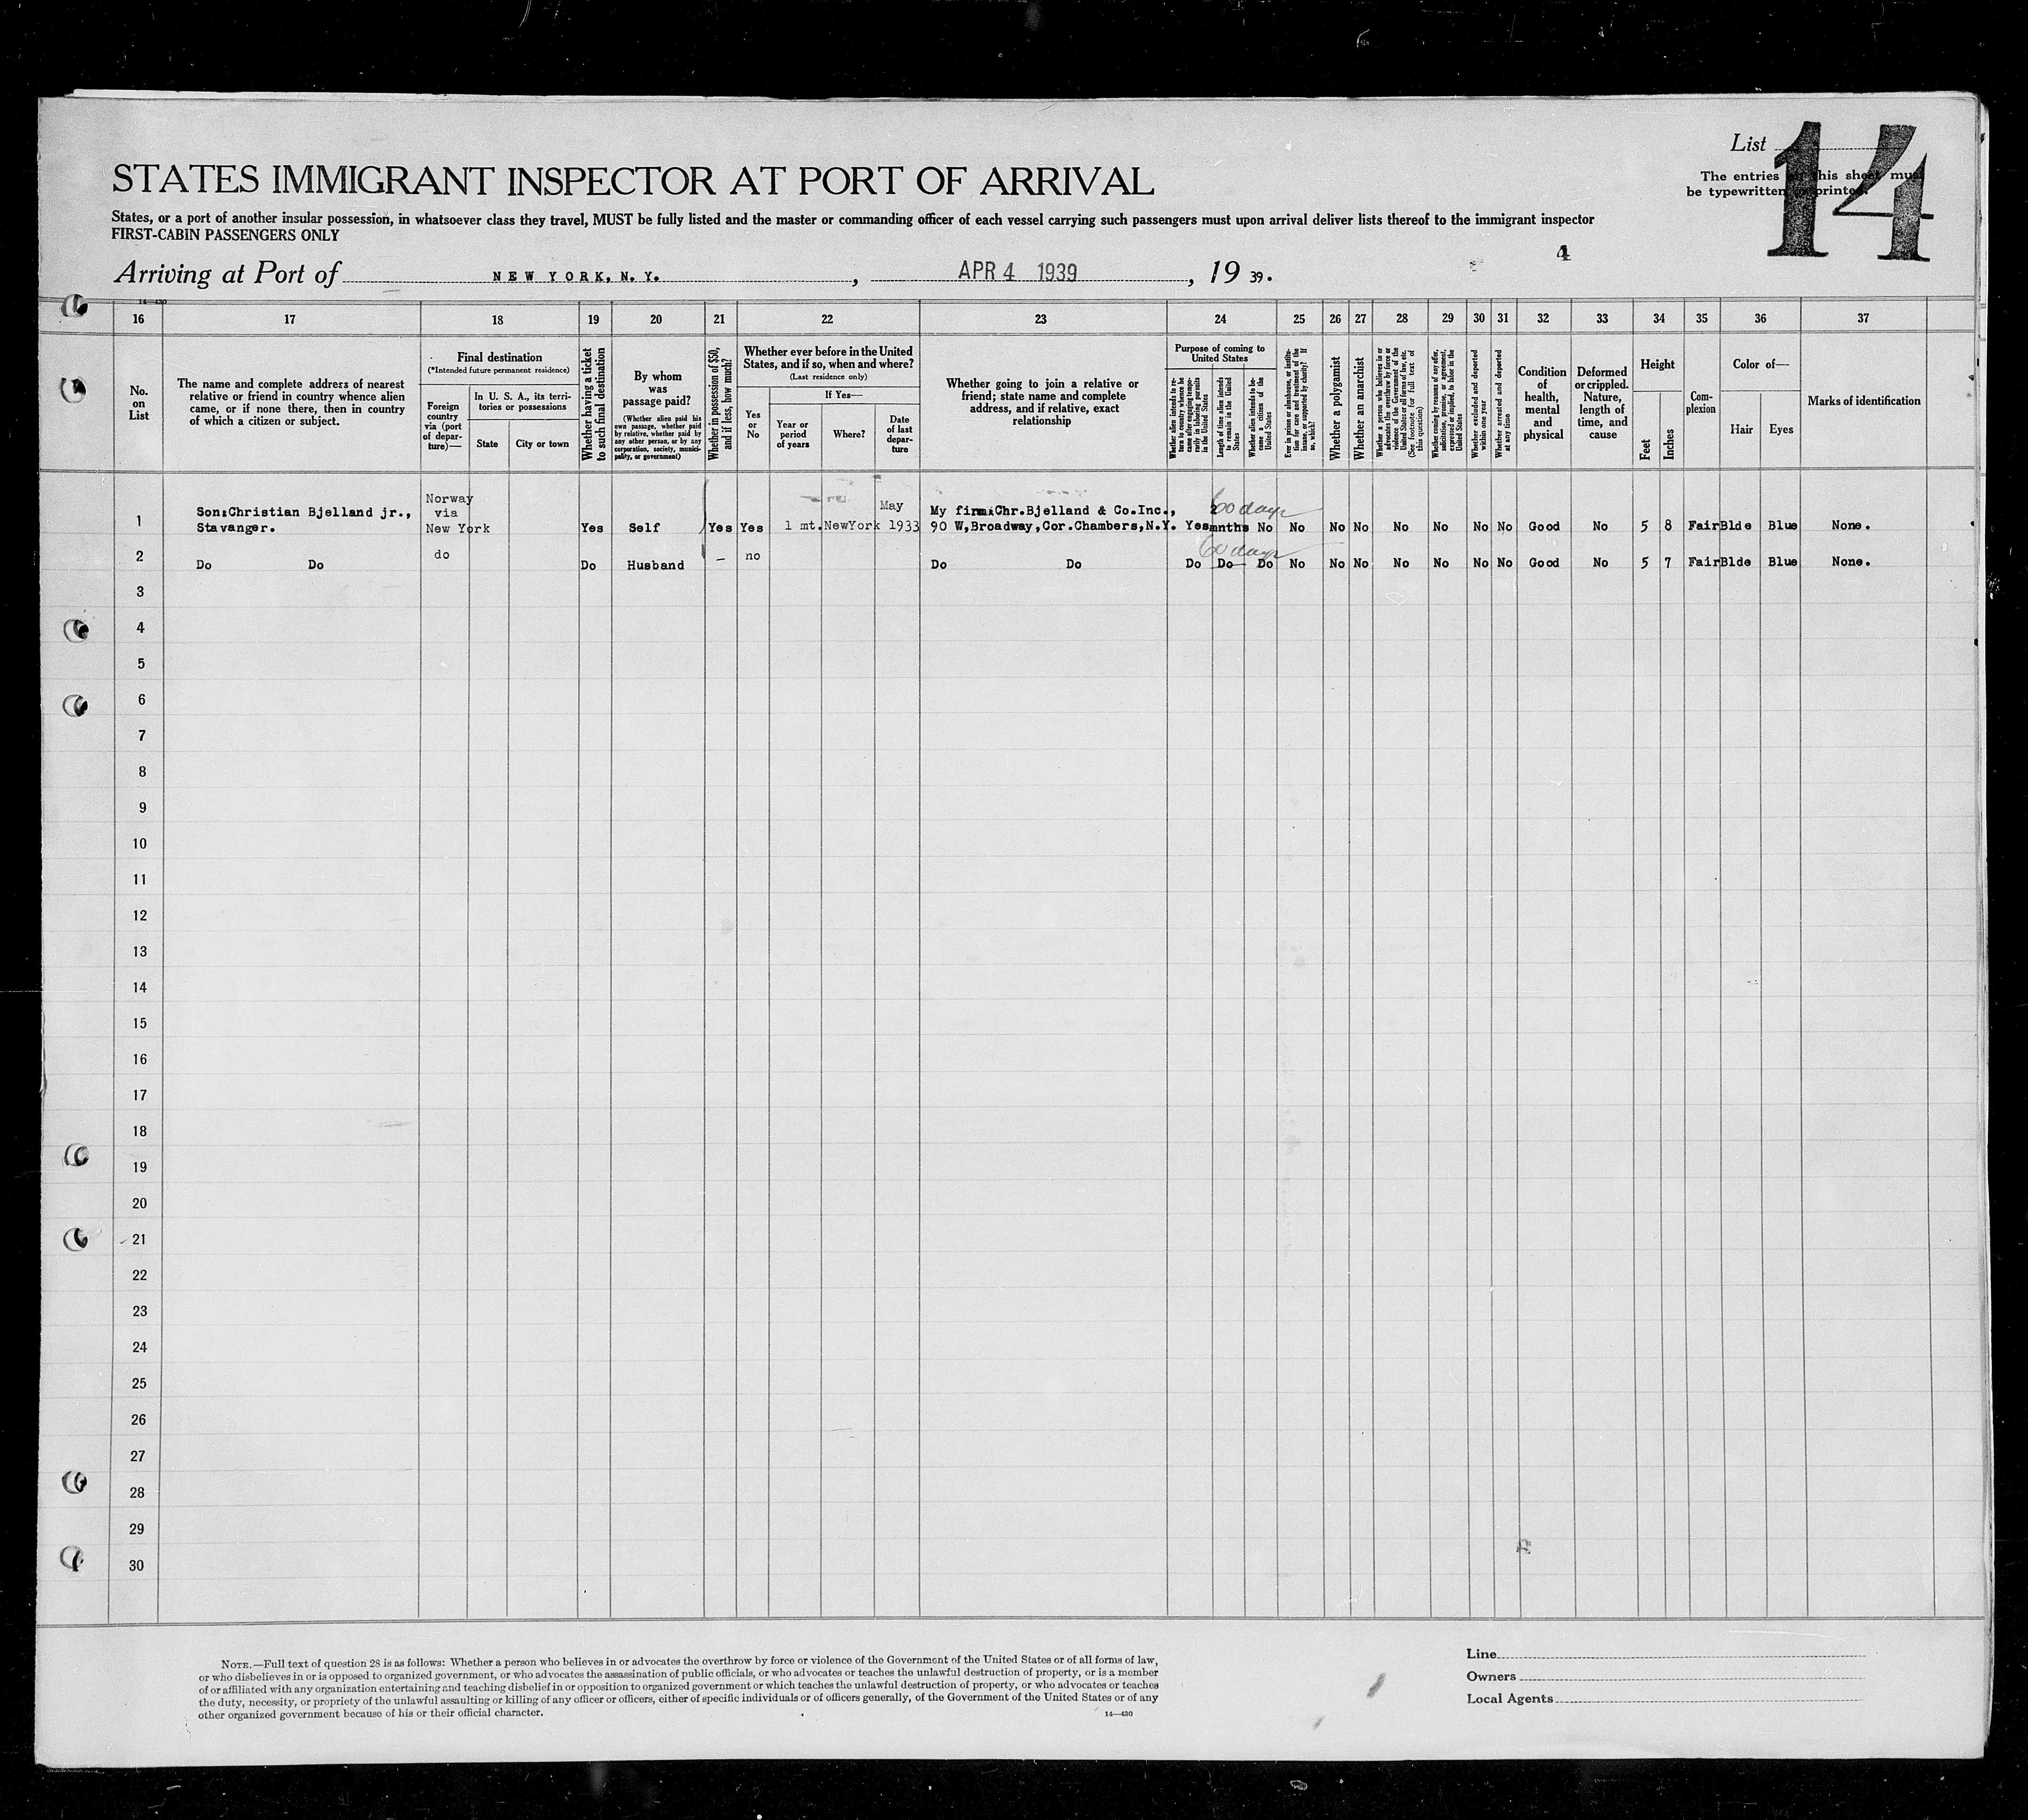 List
14
The entries on this sheet must
be typewritten or printed.
STATES IMMIGRANT INSPECTOR AT PORT OF ARRIVAL
States, or a port of another insular possession, in whatsoever class they travel, MUST be fully listed and the master or commanding officer of each vessel carrying such passengers must upon arrival deliver lists thereof to the immigrant inspector
FIRST-CABIN PASSENGERS ONLY
4
Arriving at Port of NEW YORK, N. Y., APR 4 1939, 19 39.
14—430
16 17 18 19 20 21 22 23 24 25 26 27 28 29 30 31 32 33 34 35 36 37
No. on List
The name and complete address of nearest relative or friend in country whence alien came, or if none there, then in country of which a citizen or subject.
Final destination
(*Intended future permanent residence)
Foreign country via (port of departure)—
In U. S. A., its territories or possessions
State
City or town
Whether having a ticket to such final destination
By whom was passage paid?
(Whether alien paid his own passage, whether paid by relative, whether paid by any other person, or by any corporation, society, municipality, or government)
Whether in possession of $50, and if less, how much?
Whether ever before in the United States, and if so, when and where?
(Last residence only)
Yes or No
If Yes—
Year or period of years
Where?
Date of last departure
Whether going to join a relative or friend; state name and complete address, and if relative, exact relationship
Purpose of coming to United States
Whether alien intends to return to country whence he came after engaging temporarily in laboring pursuits in the United States
Length of time alien intends to remain in the United States
Whether alien intends to become a citizen of the United States
Ever in prison or almshouse, or institution for care and treatment of the insane, or supported by charity? If so, which?
Whether a polygamist
Whether an anarchist
Whether a person who believes in or advocates the overthrow by force or violence of the Government of the United States or all forms of law, etc. (See footnote for full text of this question)
Whether coming by reasons of any offer, solicitation, promise, or agreement, expressed or implied, to labor in the United States
Whether excluded and deported within one year
Whether arrested and deported at any time
Condition of health, mental and physical
Deformed or crippled. Nature, length of time, and cause
Height
Feet
Inches
Complexion
Color of—
Hair
Eyes
Marks of identification
1 Son:Christian Bjelland jr., Stavanger. Norway via New York Yes Self Yes Yes 1 mt. NewYork May 1933 My firm:Chr.Bjelland & Co.Inc., 90 W,Broadway,Cor.Chambers,N.Y. Yes mnths 60 days No No No No No No No No Good No 5 8 Fair Blde Blue None.
2 Do Do do Do Husband – no Do Do Do Do 60 days Do No No No No No No No Good No 5 7 Fair Blde Blue None.
3
4
5
6
7
8
9
10
11
12
13
14
15
16
17
18
19
20
21
22
23
24
25
26
27
28
29
30
NOTE.—Full text of question 28 is as follows: Whether a person who believes in or advocates the overthrow by force or violence of the Government of the United States or of all forms of law,
or who disbelieves in or is opposed to organized government, or who advocates the assassination of public officials, or who advocates or teaches the unlawful destruction of property, or is a member
of or affiliated with any organization entertaining and teaching disbelief in or opposition to organized government or which teaches the unlawful destruction of property, or who advocates or teaches
the duty, necessity, or propriety of the unlawful assaulting or killing of any officer or officers, either of specific individuals or of officers generally, of the Government of the United States or of any
other organized government because of his or their official character.
14—430
Line
Owners
Local Agents